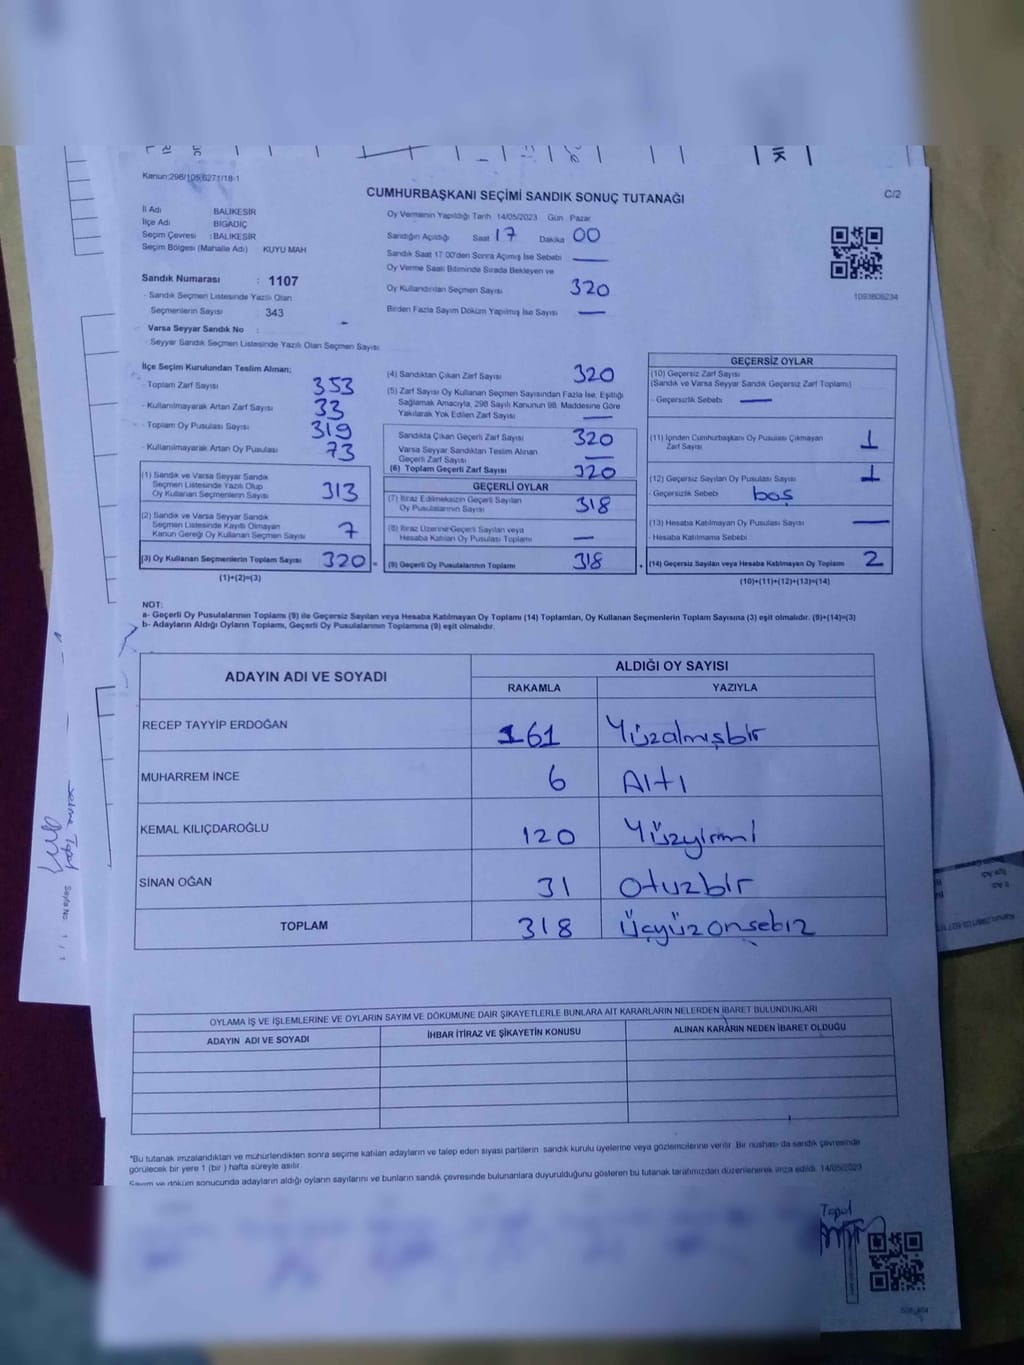 Kanun:298/105,6271/18-1
CUMHURBAŞKANI SEÇİMİ SANDIK SONUÇ TUTANAĞI
C/2
İl Adı BALIKESİR
İlçe Adı BİGADİÇ
Seçim Çevresi : BALIKESİR
Seçim Bölgesi (Mahalle Adı) KUYU MAH
Sandık Numarası : 1107
Sandık Seçmen Listesinde Yazılı Olan
Seçmenlerin Sayısı : 343
Varsa Seyyar Sandık No : -
Seyyar Sandık Seçmen Listesinde Yazılı Olan Seçmen Sayısı
Oy Vermenin Yapıldığı Tarih 14/05/2023 Gün Pazar
Sandığın Açıldığı Saat 17 Dakika 00
Sandık Saat 17 00'den Sonra Açılmış İse Sebebi —
Oy Verme Saati Bitiminde Sırada Bekleyen ve
Oy Kullandırılan Seçmen Sayısı 320
Birden Fazla Sayım Döküm Yapılmış İse Sayısı —
1093808234
İlçe Seçim Kurulundan Teslim Alınan;
Toplam Zarf Sayısı 353
Kullanılmayarak Artan Zarf Sayısı 33
Toplam Oy Pusulası Sayısı 319
Kullanılmayarak Artan Oy Pusulası 73
(1) Sandık ve Varsa Seyyar Sandık
Seçmen Listesinde Yazılı Olup
Oy Kullanan Seçmenlerin Sayısı 313
(2) Sandık ve Varsa Seyyar Sandık
Seçmen Listesinde Kayıtlı Olmayan
Kanun Gereği Oy Kullanan Seçmen Sayısı 7
(3) Oy Kullanan Seçmenlerin Toplam Sayısı 320 =
(1)+(2)=(3)
(4) Sandıktan Çıkan Zarf Sayısı 320
(5) Zarf Sayısı Oy Kullanan Seçmen Sayısından Fazla İse, Eşitliği
Sağlamak Amacıyla, 298 Sayılı Kanunun 98. Maddesine Göre
Yakılarak Yok Edilen Zarf Sayısı —
Sandıkta Çıkan Geçerli Zarf Sayısı 320
Varsa Seyyar Sandıktan Teslim Alınan
Geçerli Zarf Sayısı —
(6) Toplam Geçerli Zarf Sayısı 320
GEÇERLİ OYLAR
(7) İtiraz Edilmeksizin Geçerli Sayılan
Oy Pusulalarının Sayısı 318
(8) İtiraz Üzerine Geçerli Sayılan veya
Hesaba Katılan Oy Pusulası Toplamı —
(9) Geçerli Oy Pusulalarının Toplamı 318 +
GEÇERSİZ OYLAR
(10) Geçersiz Zarf Sayısı
(Sandık ve Varsa Seyyar Sandık Geçersiz Zarf Toplamı)
- Geçersizlik Sebebi —
(11) İçinden Cumhurbaşkanı Oy Pusulası Çıkmayan
Zarf Sayısı 1
(12) Geçersiz Sayılan Oy Pusulası Sayısı 1
- Geçersizlik Sebebi boş
(13) Hesaba Katılmayan Oy Pusulası Sayısı —
- Hesaba Katılmama Sebebi
(14) Geçersiz Sayılan veya Hesaba Katılmayan Oy Toplamı 2
(10)+(11)+(12)+(13)=(14)
NOT:
a- Geçerli Oy Pusulalarının Toplamı (9) ile Geçersiz Sayılan veya Hesaba Katılmayan Oy Toplamı (14) Toplamları, Oy Kullanan Seçmenlerin Toplam Sayısına (3) eşit olmalıdır. (9)+(14)=(3)
b- Adayların Aldığı Oyların Toplamı, Geçerli Oy Pusulalarının Toplamına (9) eşit olmalıdır.
ADAYIN ADI VE SOYADI
ALDIĞI OY SAYISI
RAKAMLA YAZIYLA
RECEP TAYYİP ERDOĞAN 161 Yüzalmışbir
MUHARREM İNCE 6 Altı
KEMAL KILIÇDAROĞLU 120 Yüzyirmi
SİNAN OĞAN 31 Otuzbir
TOPLAM 318 Üçyüzonsebiz
OYLAMA İŞ VE İŞLEMLERİNE VE OYLARIN SAYIM VE DÖKÜMÜNE DAİR ŞİKAYETLERLE BUNLARA AİT KARARLARIN NELERDEN İBARET BULUNDUKLARI
ADAYIN ADI VE SOYADI İHBAR İTİRAZ VE ŞİKAYETİN KONUSU ALINAN KARARIN NEDEN İBARET OLDUĞU
*Bu tutanak imzalandıktan ve mühürlendikten sonra seçime katılan adayların ve talep eden siyasi partilerin sandık kurulu üyelerine veya gözlemcilerine verilir. Bir nüshası da sandık çevresinde
görülecek bir yere 1 (bir ) hafta süreyle asılır.
Sayım ve döküm sonucunda adayların aldığı oyların sayılarını ve bunların sandık çevresinde bulunanlara duyurulduğunu gösteren bu tutanak tarafımızdan düzenlenerek imza edildi. 14/05/2023
Topal
Sayfa No: 1 / 1